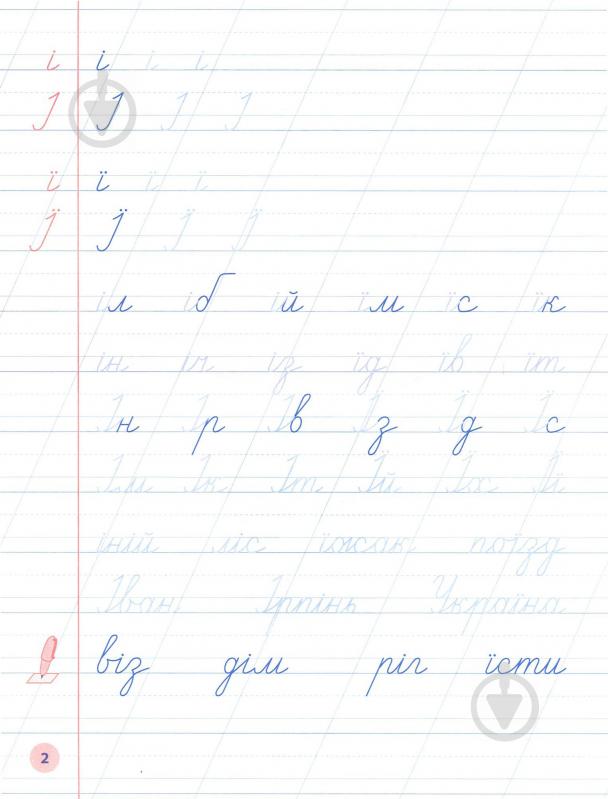 і і і і
І І І І
ї ї ї ї
Ї Ї Ї Ї
іл іб ій їм їс їк
ін іч із їд їв їт
Ін Ір Ів Їз Їд Їс
Ім Ік Іт Їй Їх Її
іній ліс їжак поїзд
Іван Ірпінь Україна
віз дім ріг їсти
2